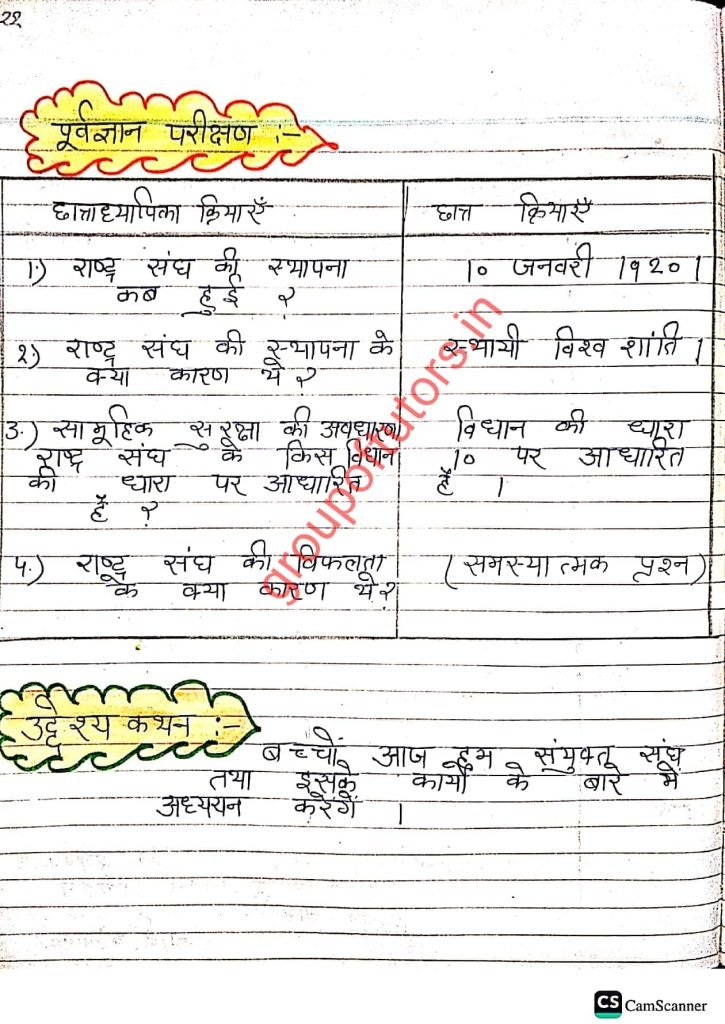 २२
पूर्वज्ञान परीक्षण :-
छात्राध्यापिका क्रियाएँ
छात्र क्रियाएँ
1.) राष्ट्र संघ की स्थापना
कब हुई ?
१० जनवरी १९२०।
२.) राष्ट्र संघ की स्थापना के
क्या कारण थे ?
स्थायी विश्व शांति।
३.) सामूहिक सुरक्षा की अवधारणा
राष्ट्र संघ के किस विधान
की ध्यारा पर आधारित
है ?
विधान की ध्यारा
१० पर आधारित
है ।
५.) राष्ट्र संघ की विफलता
के क्या कारण थे ?
(समस्यात्मक प्रश्न)
उद्देश्य कथन :-
बच्चों आज हम संयुक्त संघ
तथा इसके कार्यों के बारे में
अध्ययन करेंगें ।
groupoftutors.in
CS CamScanner